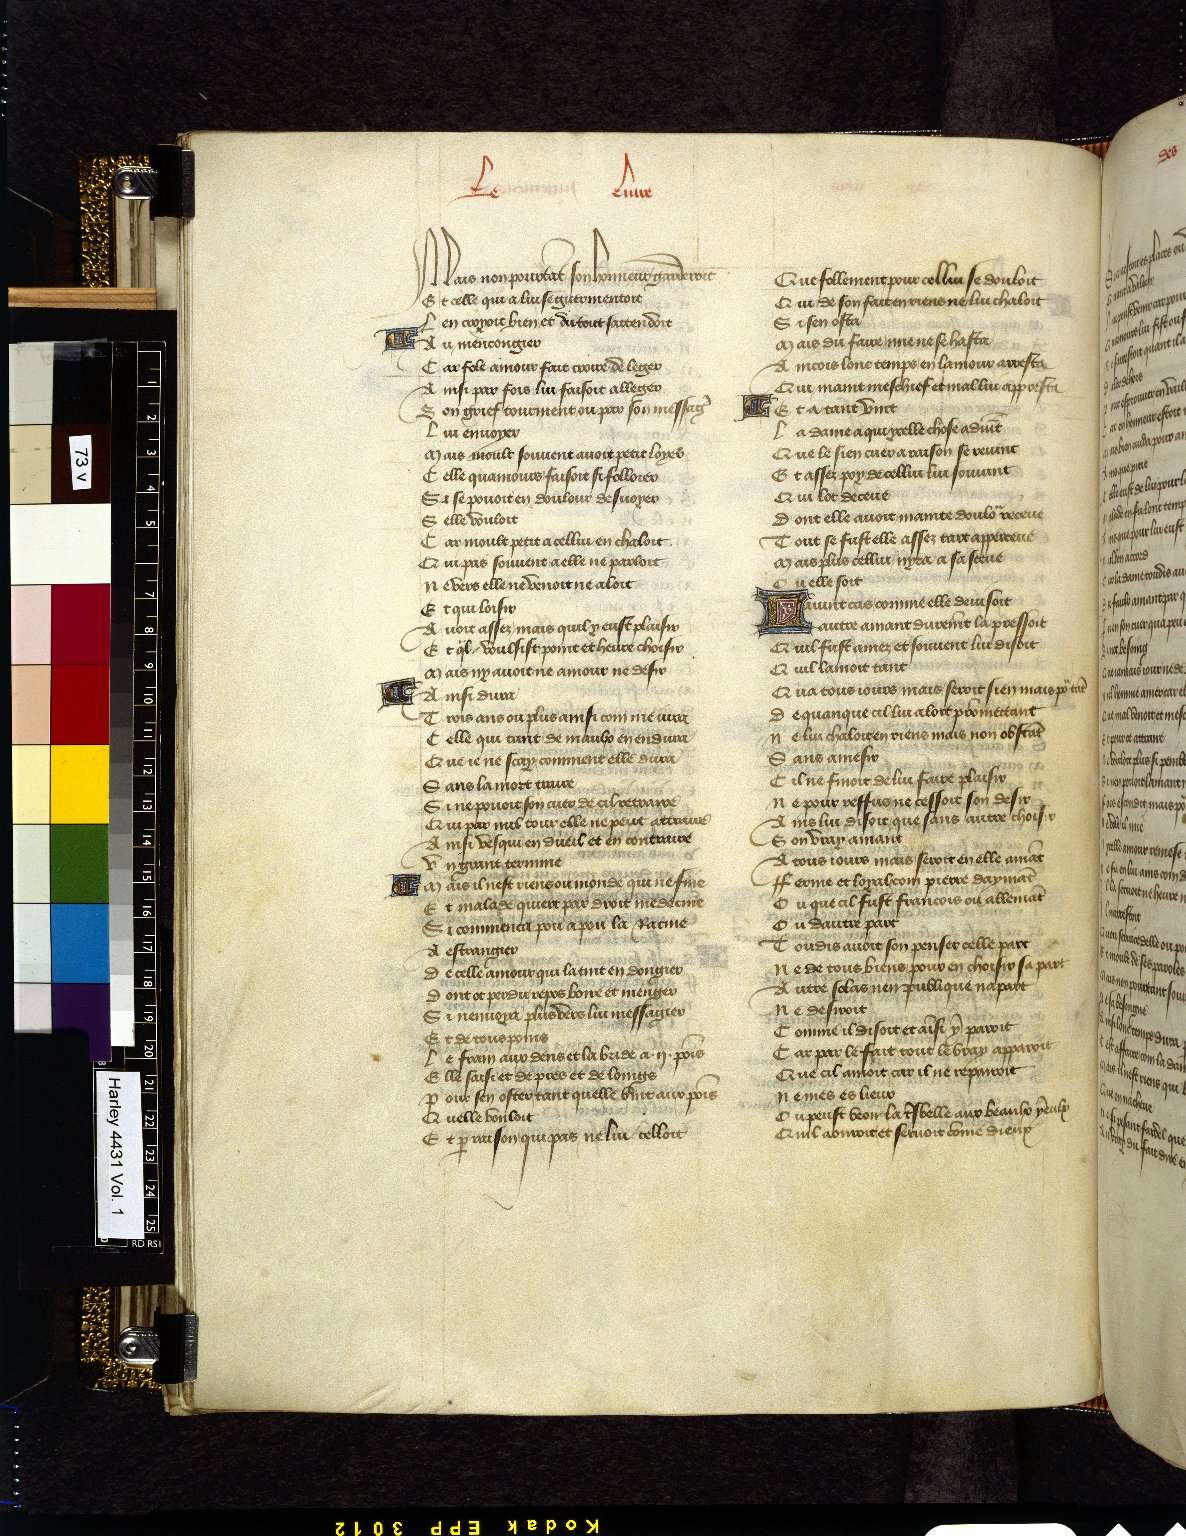 Le liure
Mais non pourtāt son honneur garderoit
Et celle qui a lui se guermentoit
Len creoit bien et du tout sattendoit
Au mencongier
Car fole amour fait croire de legier
Ainsi par fois lui faisoit alleger
Son grief tourment ou par son messagꝰ
Lui enuoyer
Mais moult souuent auoit petit loyer
Celle quamours faisoit si folloier
Si se pouoit en doulour desuoyer
Selle vouloit
Car moult petit a cellui en chaloit
Qui pas souuent a elle ne parloit
Ne vers elle ne venoit ne aloit
Et qui loisir
Auoit assez mais quil y eust plaisir
Et ql voulsist point et heure choisir
Mais ny auoit ne amour ne desir
Ainsi dura
Trois ans ou plus ainsi com me iura
Celle qui tant de maulx en endura
Que ie ne scay comment elle dura
Sans la mort traire
Si ne pouoit son cuer de cil retraire
Qui par nul tour elle ne peut attraire
Ainsi vesqui en dueil et en contraire
Un grant termine
Mais il nest riens ou monde qui ne fine
Et malade quiert par droit medecine
Si commenca pou a pou la Racine
A estrangier
De celle amour qui la tint en dongier
Dont ot perdu repos boire et menger
Si nenuoya plus vers lui messagier
Et de tous poins
Le frain aux dens et la bride a .ii. poīs
Elle saisi et de pres et de loings
Pour sen oster tant quelle vint aux poīs
Quelle vouloit
Et ꝑ raison qui pas ne lui celloit
Que follement pour cellui se douloit
Qui de son fait en riens ne lui chaloit
Si sen osta
Mais du faire mie ne se hasta
Aincois lonc temps en lamour arresta
Qui maint meschief et mal lui appresta
Et a tant vint
La dame a qui ycelle chose aduīt
Que le sien cuer a raison se reuint
Et assez poy de cellui lui souuint
Qui lot deceue
Dont elle auoit mainte doulōʳ receue
Tout se fust elle assez tart apperceue
Mais plus cellui nyra a sa sceue
Ou elle soit
Auint cas comme elle deuisoit
autre amant duremēt la pressoit
Quil fust amez et souuent lui disoit
Quil lamoit tant
Qua tous iours mais seroit sien mais pō tāt
De quanque cil lui aloit promettant
Ne lui chaloit en riens mais non obstāt
Sans amesir
Cil ne finoit de lui faire plaisir
Ne pour reffus ne cessoit son desir
Ains lui disoit que sans autre choisir
Son vray amant
A tous iours mais seroit en elle amāt
Ferme et loyal com pierre daymāt
Ou que cil fust francois ou allemāt
Ou dautre part
Toudis auoit son penser celle part
Ne de tous biens pour en choisir sa part
Autre solas nen publique napart
Ne desiroit
Comme il disoit et aīsi y paroit
Car par le fait tout le vray apparoit
Que cil amoit car il ne repairoit
Nemes es lieux
Ou peust veoir la tresbelle aux beaulx yeulx
Quil aouroit et seruoit cōme dieux
des
73 v
Harley 4431 Vol. 1
Kodak EPP 3012